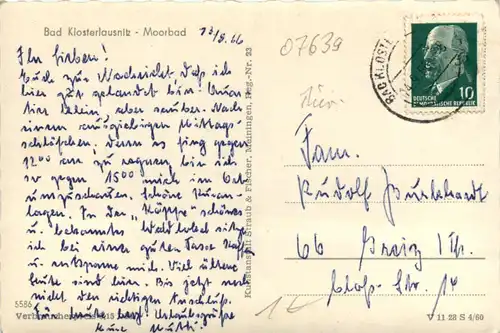 Bad Klosterlausnitz - Moorbad
13/8.66
Ihr Lieben!
Euch zur Nachricht daß ich
hier gut gelandet bin. Quar
tier klein, aber sauber. Nach
einem ausgiebigen Mittags-
schläfchen, denn es fing gegen
12⁰⁰ an zu regnen bin ich
so gegen 15⁰⁰ mich im Ort
umzuschauen. Schöne Kuran-
lagen. In der "Köppe" schönes
u. bekanntes Waldlokal sitze
ich bei einer guten Tasse Kaffee
u. entspanne mich. Viel ältere
Leute sind hier. Bis jetzt noch
nicht den richtigen Anschluß.
Für heute herzl. Urlaubsgrüße
Eure Mutti
5585
Kunstanstalt Straub & Fischer, Meiningen, Reg.-Nr. 23
07639
BAD KLOSTERL
DEUTSCHE
DEMOKRATISCHE REPUBLIK
10
Fam.
Rudolf Burkhardt
66 Greiz Th.
Str. 14
1€
V 11 28 S 4/60